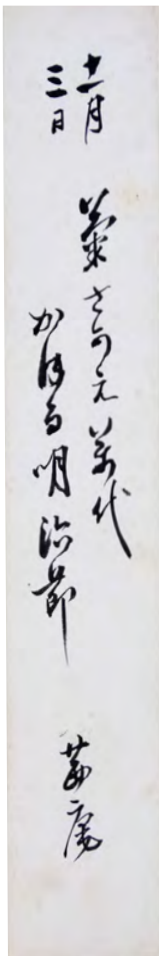 十一月
三日
菊さかえ萬代
かほる明治節